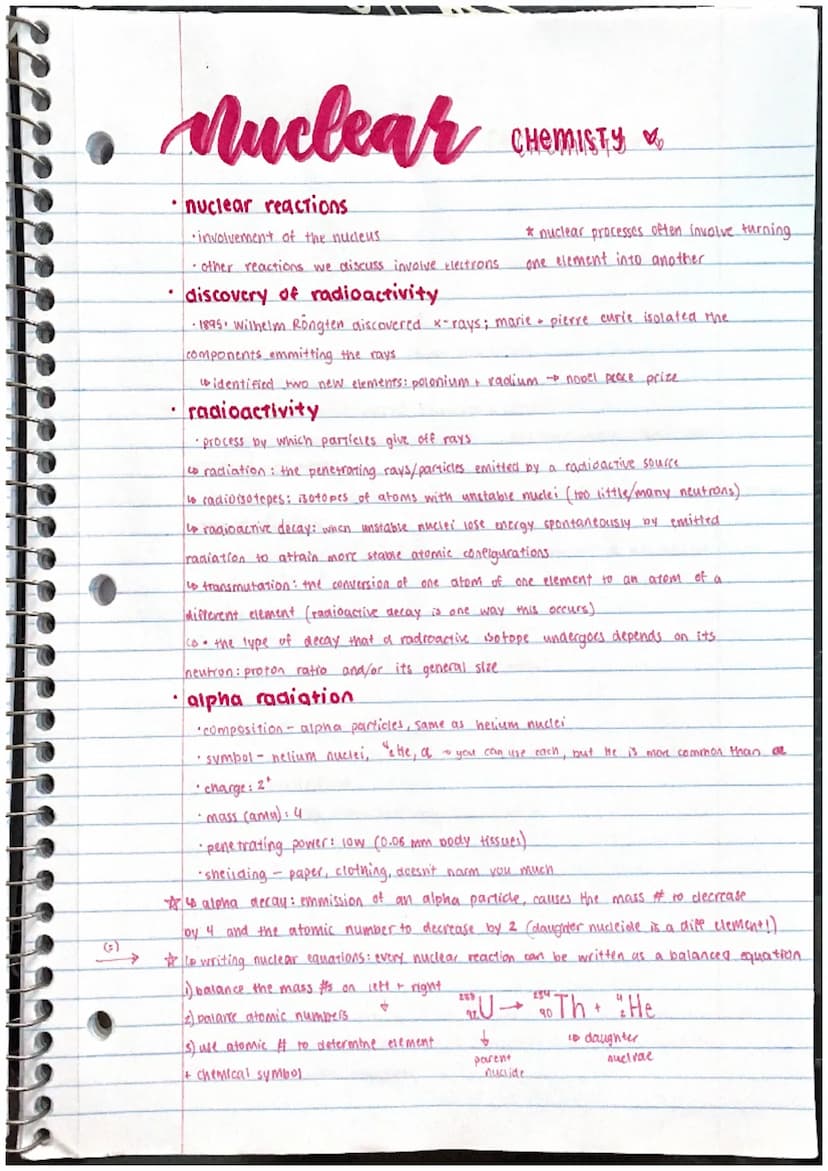 nuclear CHEMISTY
• nuclear reactions
• involvement of the nucleus
* nuclear processes often involve turning
• other reactions we discuss involve electrons
one element into another
• discovery of radioactivity
• 1895: Wilhelm Röngten discovered x-rays; marie + pierre curie isolated the
components emmitting the rays
↳ identified two new elements: polonium + radium → nobel peace prize
• radioactivity
• process by which particles give off rays
↳ radiation: the penetrating rays/particles emitted by a radioactive source
↳ radioisotopes: isotopes of atoms with unstable nuclei (too little/many neutrons)
↳ radioactive decay: when unstable nuclei lose energy spontaneously by emitted
radiation to attain more stable atomic configurations
↳ transmutation: the conversion of one atom of one element to an atom of a
different element (radioactive decay is one way this occurs)
↳ • the type of decay that a radioactive isotope undergoes depends on its
neutron:proton ratio and/or its general size
• alpha radiation
• composition - alpha particles, same as helium nuclei
• symbol - helium nuclei, ⁴₂He, α → you can use each, but He is more common than α
• charge: 2⁺
• mass (amu): 4
• penetrating power: low (0.05 mm body tissues)
• sheilding - paper, clothing, doesn't harm you much
☆ ↳ alpha decay: emmission of an alpha particle, causes the mass # to decrease
by 4 and the atomic number to decrease by 2 (daughter nucleide is a diff element!)
☆ ↳ writing nuclear equations: every nuclear reaction can be written as a balanced equation
1) balance the mass #s on left + right
2) balance atomic numbers
²³⁸₉₂U → ²³⁴₉₀Th + ⁴₂He
3) use atomic # to determine element
↳ daughter
parent
nuclide
+ chemical symbol